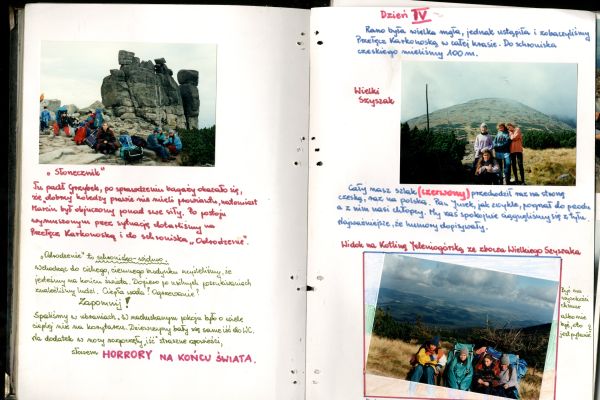 „Słonecznik"
Tu padł Grzybek, po sprawdzeniu bagaży okazało się,
że dobrzy koledzy prawie nie mieli prowiantu, natomiast
Marcin był objuczony ponad swe siły. Po postoju
wymuszonym przez sytuację dotarliśmy na
Przełęcz Karkonoską i do schroniska „Odrodzenie".
„Odrodzenie" to schronisko-widmo.
Wchodząc do cichego, ciemnego budynku myśleliśmy, że
jesteśmy na końcu świata. Dopiero po usilnych poszukiwaniach
znaleźliśmy ludzi. Ciepła woda! Ogrzewanie?
Zapomnij!
Spaliśmy w ubraniach, w niedusznym pokoju było o wiele
cieplej niż na korytarzu. Dziewczyny bały się same iść do WC.
Na dodatek w nocy straszne opowieści,
słowem HORRORY NA KOŃCU ŚWIATA.
Dzień IV
Rano była wielka mgła, jednak ustąpiła i zobaczyliśmy
Przełęcz Karkonoską w całej krasie. Do schroniska
czeskiego mieliśmy 100 m.
Wielki
Szyszak
Cały nasz szlak (czerwony) przechodził raz na stronę
czeską, raz na polską. Pan Jurek, jak zwykle, pognał do przodu
a z nim nasi chłopcy. My zaś spokojnie ciągnęliśmy się z tyłu.
Najważniejsze, że humory dopisywały.
Widok na Kotlinę Jeleniogórską ze zbocza Wielkiego Szyszaka
Być na
wysokości
chmur
albo nie
być, oto
jest pytanie